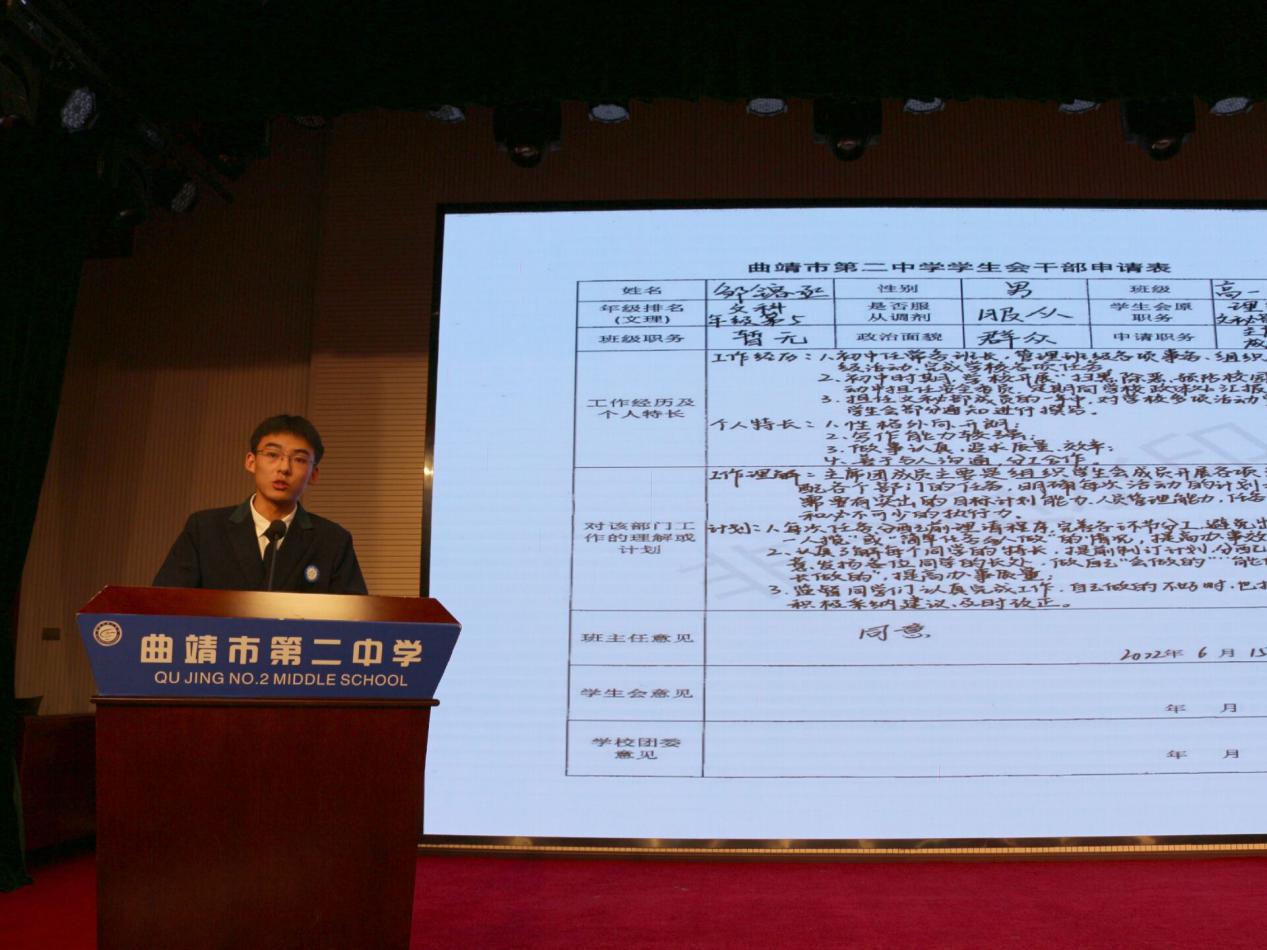 曲靖市第二中学学生会干部申请表
姓名 性别 男 班级 高一
年级排名 文科 是否服 服从 学生会原
(文理) 年级第5 从调剂 职务
班级职务 暂无 政治面貌 群众 申请职务
工作经历及
个人特长
工作经历：1.初中任常务班长，管理班级各项事务、组织
级活动，完成学校各项任务
2.初中时期，学校开展"扫黑除恶，预防校园
动中担任安全委员，定期向学校政体处汇报
3.担任文秘部成员的一年中，对学校多项活动
学生会部分通知进行撰写。
个人特长：1.性格外向开朗；
2.写作能力较强；
3.做事认真，追求质量、效率；
4.善于与人沟通，分工合作
对该部门工
作的理解或
计划
工作理解：主席团成员主要是组织学生会成员开展各项活
配各个部门的任务，明确每次活动的计划
需要有突出的目标计划能力、人员管理能力，任务
和必不可少的执行力。
计划：1.每次任务分配之前理清程序，完善各环节分工，避免出
一人揽"或"简单任务多人做"的情况，提高办事效
2.认真了解每个同学的特长，提前制订计划，分配
意，发扬各位同学的长处，做后"会做的""能
长做的"，提高办事质量；
3.监督同学们认真完成工作，自己做的不妙时，也
积极采纳建议，及时改正。
班主任意见 同意
2022年 6 月 15
学生会意见
年 月
学校团委
意见
年 月
曲靖市第二中学
QU JING NO.2 MIDDLE SCHOOL